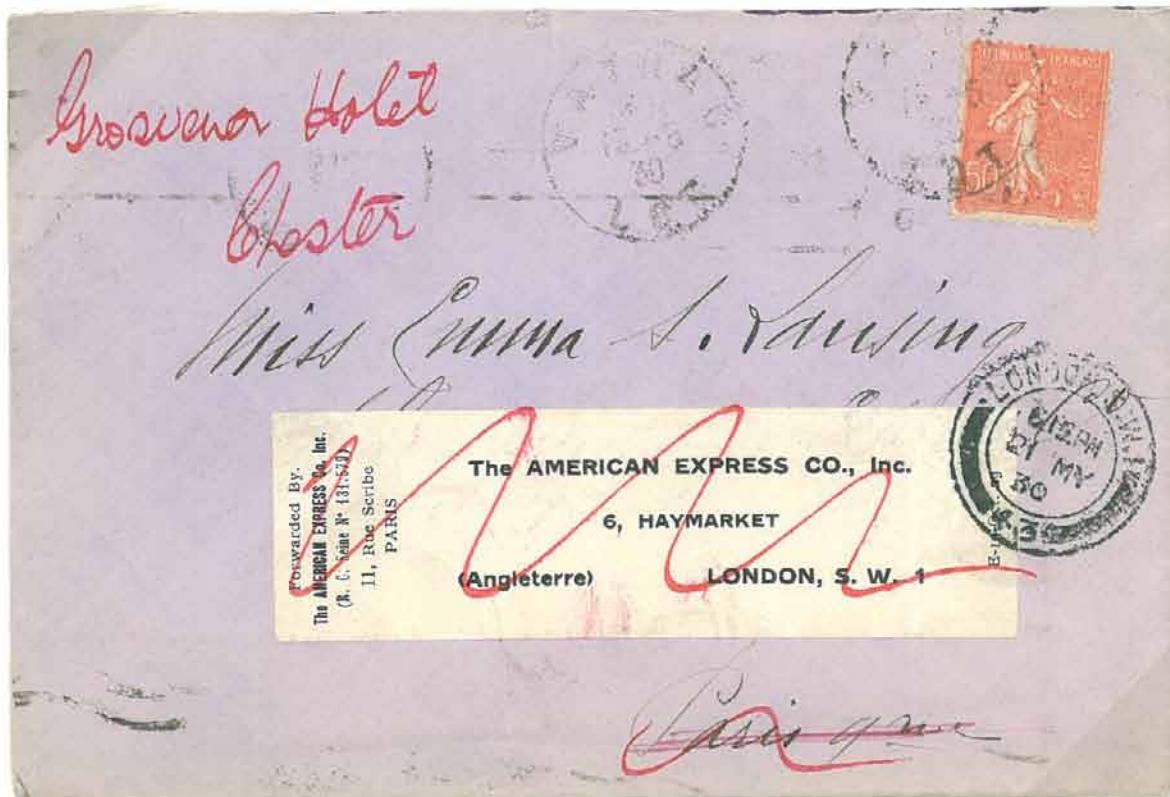 Grosvenor Hotel
Chester
50
Miss Emma S. Lansing
LONDON
12 MY
30
Forwarded By.
The AMERICAN EXPRESS Co. Inc.
11, Rue Scribe
PARIS
The AMERICAN EXPRESS CO., Inc.
6, HAYMARKET
(Angleterre) LONDON, S. W. 1
Paris 9me